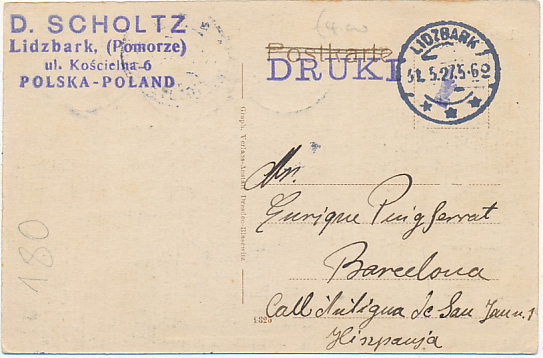 D. SCHOLTZ
Lidzbark, (Pomorze)
ul. Kościelna 6
POLSKA-POLAND
Postkarte
DRUKI
LIDZBARK
31. 5.27.5-6
Mr.
Enrique Puig Ferrat
Barcelona
Call Antigua de San Juan 1
Hiszpanja
180
Graph. Verlags-Anstalt Dresden-Blasewitz